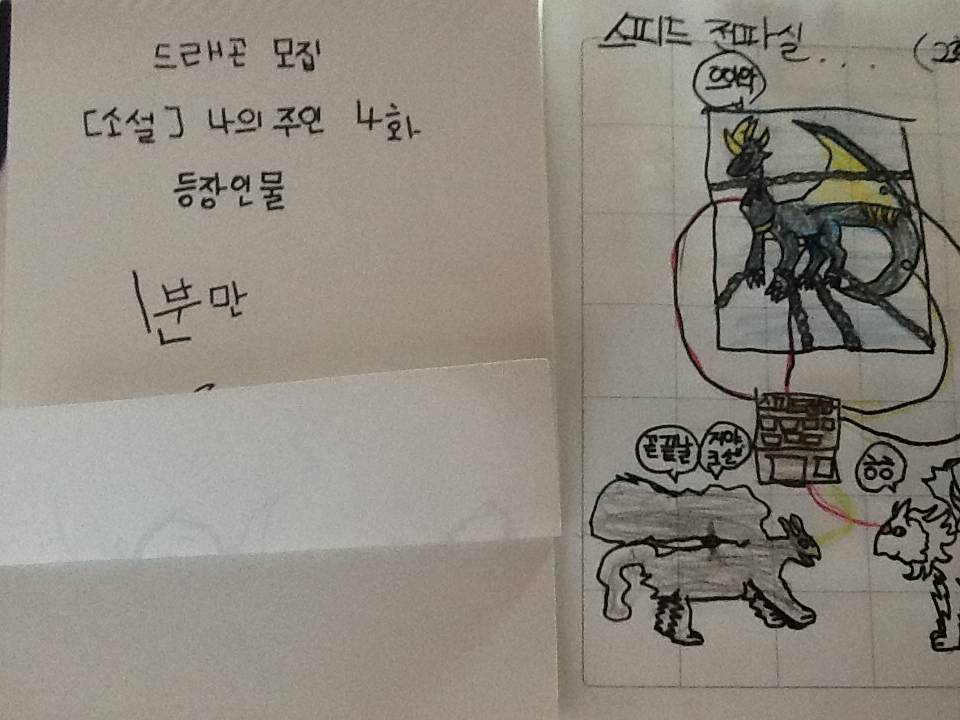 드래곤 모집
[소설] 나의 주인 4화
등장인물
1분만
스피드 전파실.... (2
으와악
끝끝날
흐흐